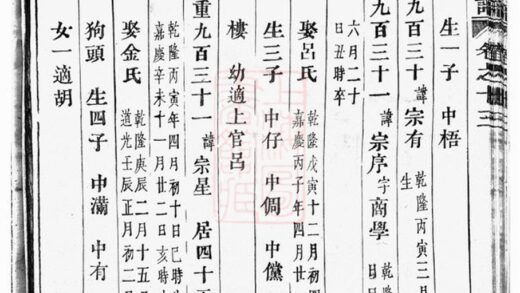 譜 卷之十三
生一子 中梧
九百三十 諱宗有 乾隆丙寅三月
生
九百三十一 諱宗序 字商學 乾隆
六月二十
日丑時卒
娶呂氏 乾隆戊寅十二月初
嘉慶丙子年四月廿
生三子 中仔 中倜 中儻
樓 幼適上官呂
重九百三十一 諱宗星 居四十
乾隆丙寅年四月初十日巳時
嘉慶辛未十一月廿二日亥時
娶金氏 乾隆庚辰二月十五
道光壬辰正月初二
狗頭 生四子 中滿 中有
女一適胡